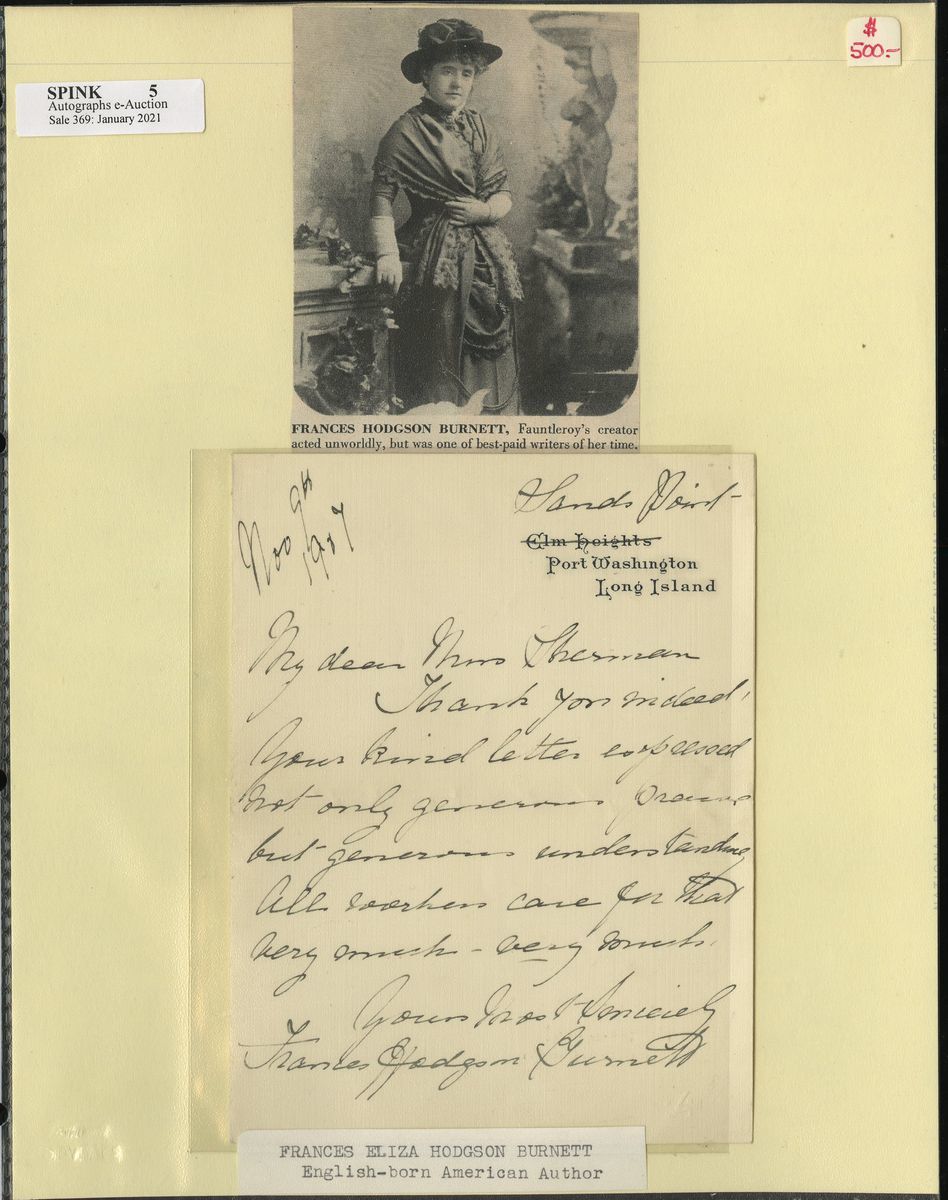 $
500.-
SPINK 5
Autographs e-Auction
Sale 369: January 2021
FRANCES HODGSON BURNETT, Fauntleroy's creator
acted unworldly, but was one of best-paid writers of her time.
Nov 9th
1907
Sands Point-
Elm Heights
Port Washington
Long Island
My dear Mrs Sherman
Thank you indeed.
Your kind letter expressed
not only generous praise
but generous understanding
All workers care for that
very much - very much.
Yours most sincerely
Frances Hodgson Burnett
FRANCES ELIZA HODGSON BURNETT
English-born American Author